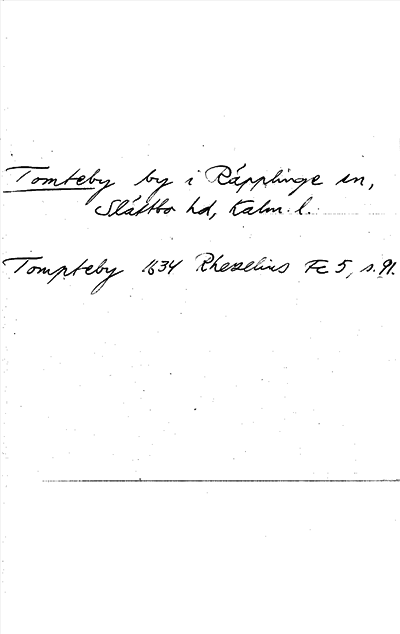 Tomteby by i Räpplinge sn,
Slättbo hd, Kalm. l.
Tompteby 1634 Rhezelius Fc 5, s. 91.